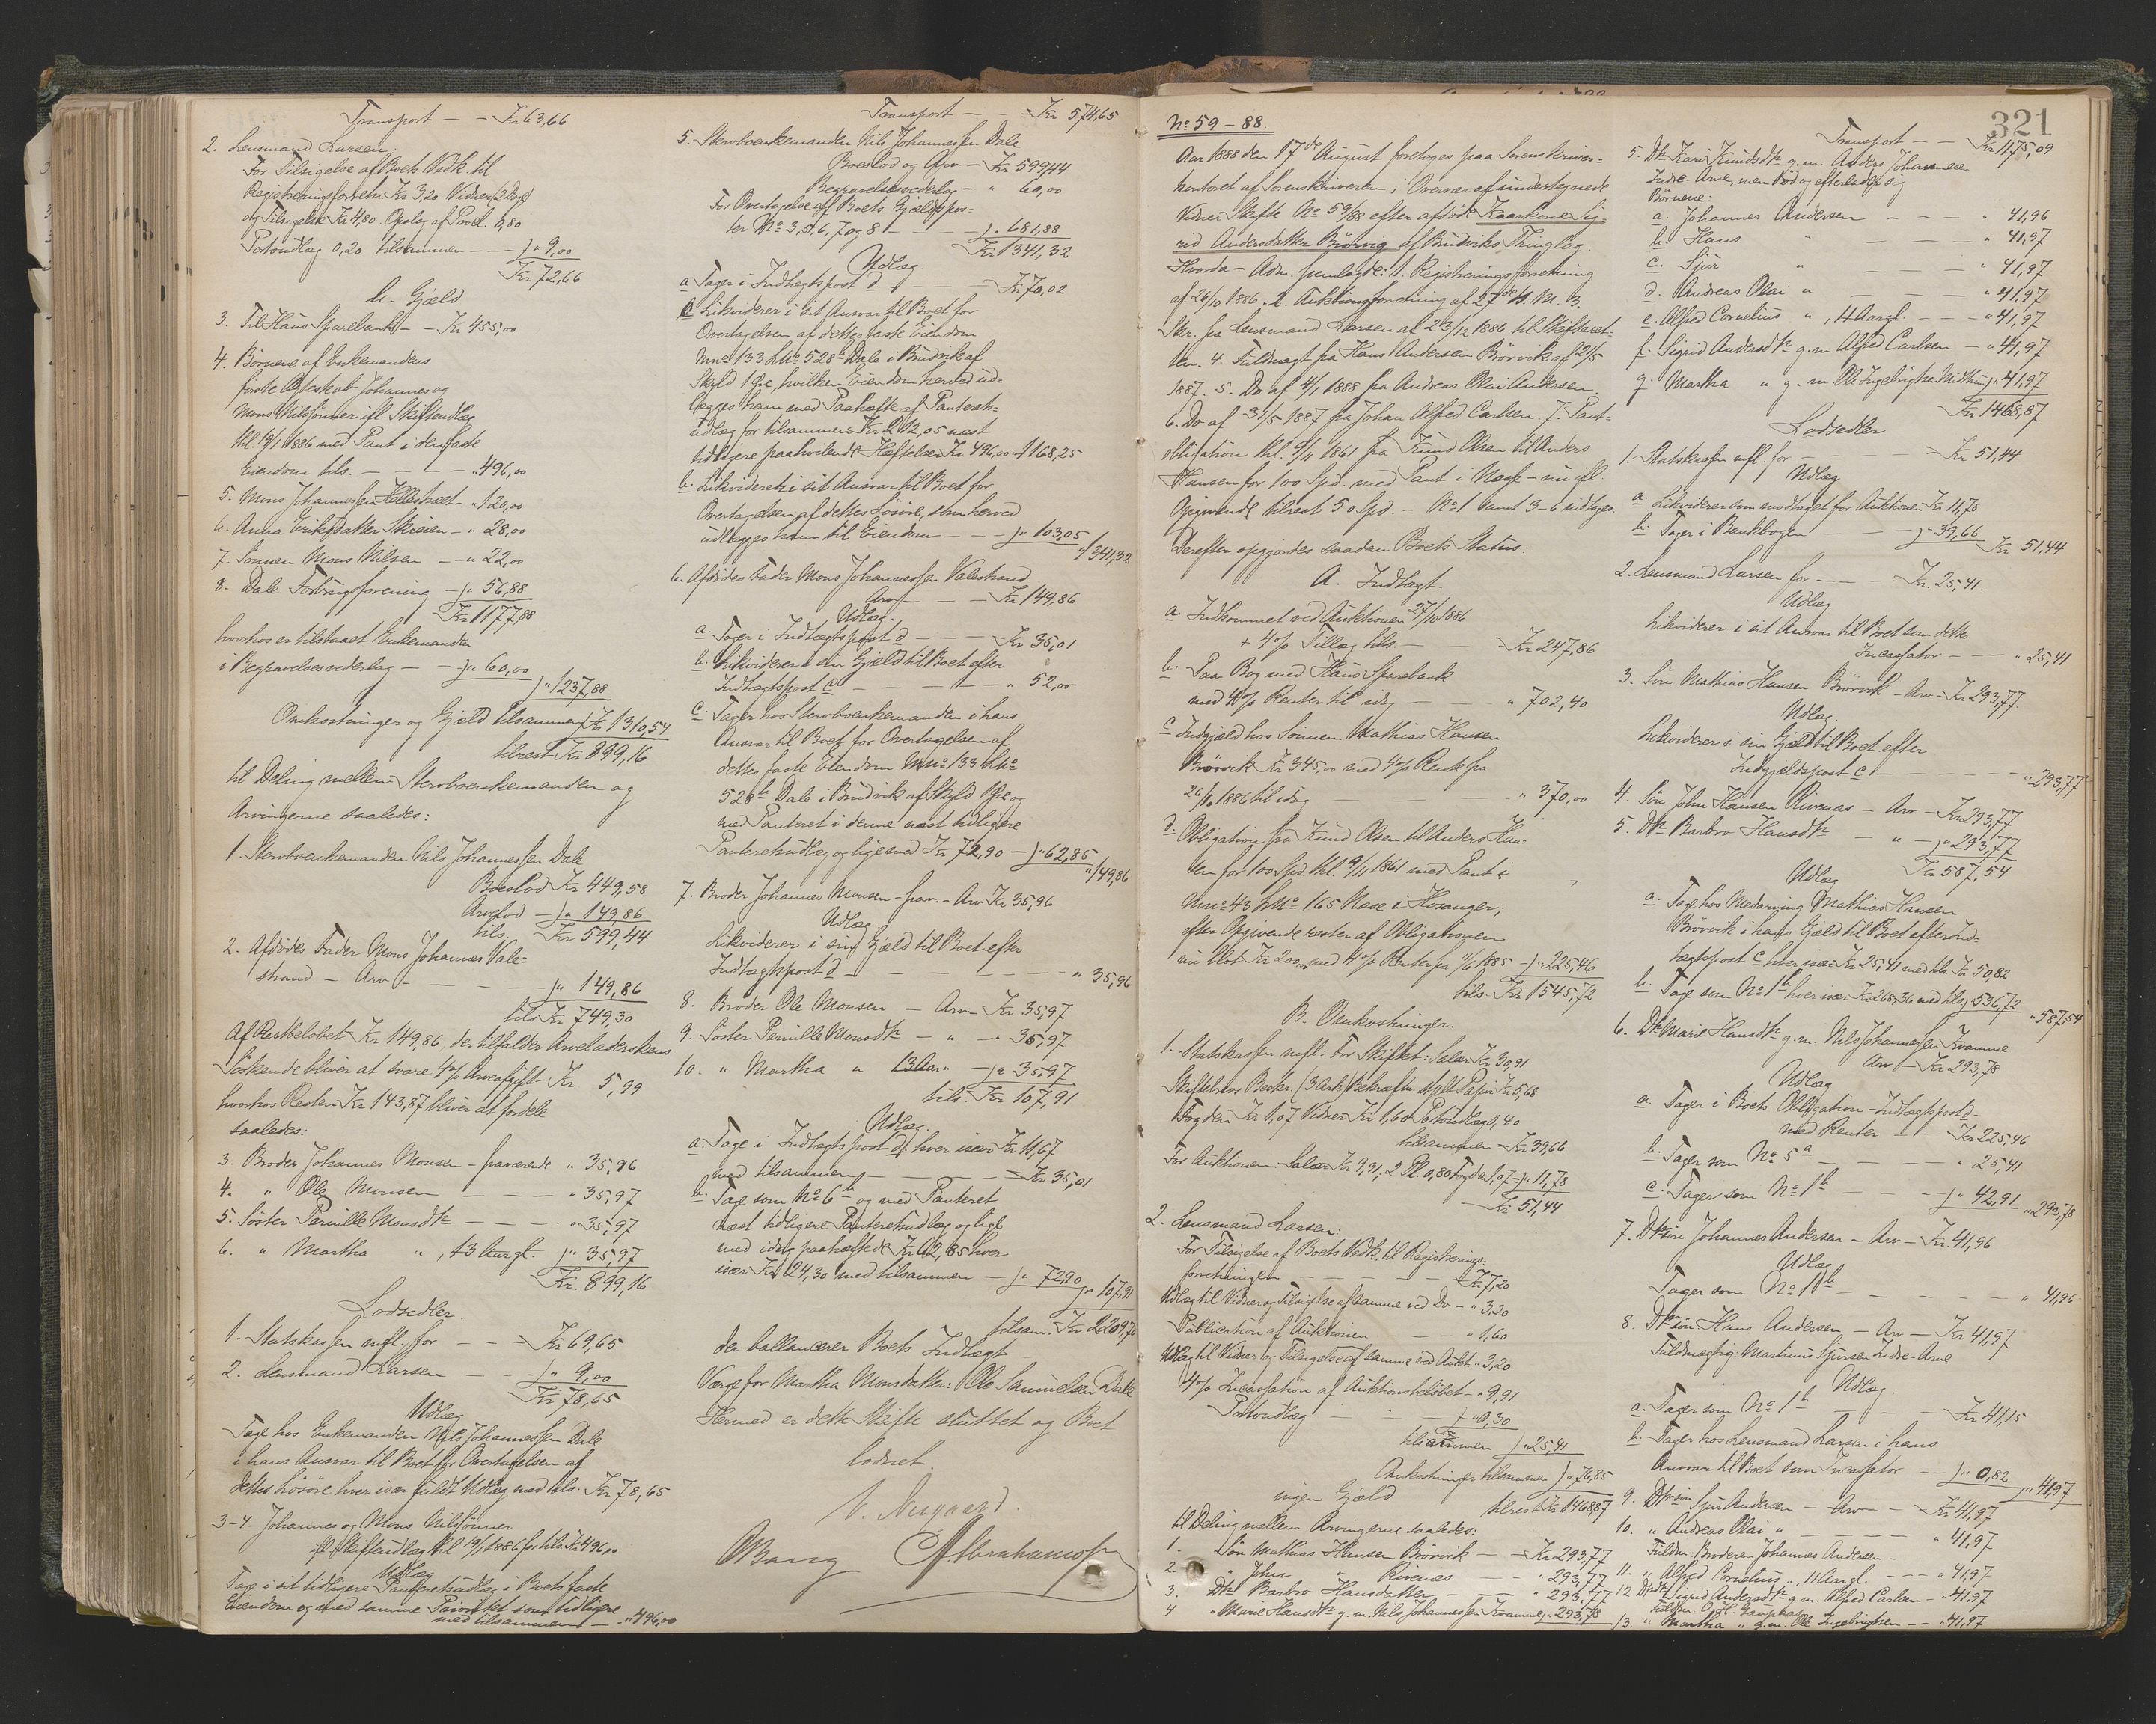 Transport — — Kr 63,66
2. Lensmand Larsen:
For Tilsigelse af Boets Vedk. til
Registreringsforretn. Kr 3,20 Vidner (2 Dage)
og Tilsigelse Kr 4,80. Opslag af Procl. 0,80
Portoudlæg 0,20 tilsammen — — " 9,00
Kr 72,66
b. Gjæld
3. Til Haus Sparebank — — Kr 455,00
4. Börnene af Enkemandens
første Ægteskab Johannes og
Mons Nilsönner ifl. Skifteudlæg
thl. 19/1 1886 med Pant i den faste
Eiendom tils. — — — — " 496,00
5. Mons Johannessen — " 120,00
6. Anna Eriksdatter Skreien — " 28,00
7. Sönnen Mons Nilsen — — " 22,00
8. Dale Forbrugsforening — " 56,88
Kr 1177,88
hvorhos er tilstaaet Enkemanden
i Begravelsesvederlag — — " 60,00
" 1237,88
Omkostninger og Gjæld tilsammen Kr 1310,54
tilrest Kr 899,16
til Deling mellem Stervboenkemanden og
Arvingerne saaledes:
1. Stervboenkemanden Nils Johannessen Dale
Boeslod Kr 449,58
Arvelod — " 149,86
tils. Kr 599,44
2. Afdödes Fader Mons Johannes Vale-
strand — Arv — — — — — " 149,86
tils Kr 749,30
Af Restbelöbet Kr 149,86, der tilfalder Arveladerskens
Söskende bliver at svare 4% Arveafgift Kr 5,99
hvorhos Resten Kr 143,87 bliver at fordele
saaledes:
3. Broder Johannes Monsen — fraværende " 35,96
4. " Ole Monsen — — — — " 35,97
5. Söster Pernille Monsdtr — — — " 35,97
6. " Martha " , 13 Aar gl. " 35,97
Kr. 899,16
Lodsedler.
1. Statskassen mfl. for — — Kr 69,65
2. Lensmand Larsen — — " 9,00
Kr 78,65
Udlæg
Tage hos Enkemanden Nils Johannessen Dale
i hans Ansvar til Boet for Overtagelsen af
dettes Lösöre hver især fuldt Udlæg med tils. Kr 78,65
3-4. Johannes og Mons Nilsönner
ifl. Skifteudlæg thl 19/1 1886 for tils Kr 496,00
Udlæg
Tage i sit tidligere Panteretsudlæg i Boets faste
Eiendom og med samme Prioritet som tidligere
med tilsammen — " 496,00
Transport — — Kr 574,65
5. Stervboenkemanden Nils Johannessen Dale
Boeslod og Arv — Kr 599,44
Begravelsesvederlag — " 60,00
For Overtagelse af Boets Gjældspos-
ter No 3, 5, 6, 7 og 8 — — — " 681,88
Kr 1341,32
Udlæg.
a Tager i Indtægtspost d — — — Kr 70,02
b Likviderer i sit Ansvar til Boet for
Overtagelsen af dettes faste Eiendom
Mno 133 Lno 528b Dale i Bruvik af
Skyld 1 Øre hvilken Eiendom herved ud-
lægges ham med Paahæfte af Panterets-
udlæg for tilsammen Kr 212,05 næst
tidligere paahvilende Hæftelser Kr 496,00 — 1168,25
b. Likviderer i sit Ansvar til Boet for
Overtagelsen af dettes Lösöre, som herved
udlægges ham til Eiendom — — " 103,05
" 1341,32
6. Afdödes Fader Mons Johannessen Valestrand
Arv — — — Kr 149,86
Udlæg.
a. Tager i Indtægtspost d — — — Kr 35,01
b. Likviderer i sin Gjæld til Boet efter
Indtægtspost c — — — — — " 52,00
c. Tager hos Stervboenkemanden i hans
Ansvar til Boet for Overtagelsen af
dettes faste Eiendom Mno 133 Lno
528b Dale i Bruvik af Skyld 1 Øre og
med Panteret i denne næst tidligere
Panteretsudlæg og lige med Kr 72,90 — " 62,85
" 149,86
7. Broder Johannes Monsen — frav. — Arv Kr 35,96
Udlæg
Likviderer i sin Gjæld til Boet efter
Indtægtspost d — — — — — — " 35,96
8. Broder Ole Monsen — Arv Kr 35,97
9. Söster Pernille Monsdtr — " — " 35,97
10. " Martha " 13 Aar " — " 35,97
tils. Kr 107,91
Udlæg.
a. Tage i Indtægtspost d. hver især Kr 11,67
med tilsammen — — — — Kr 35,01
b. Tage som No 6c og med Panteret
næst tidligere Panteretsudlæg og lige
med idag paahæftede Kr 62,85 hver
især Kr 24,30 med tilsammen — " 72,90
" 107,91
tilsam. Kr 2209,70
der ballancerer Boets Indtægt
Værge for Martha Monsdatter: Ole Samuelsen Dale
Hermed er dette Skifte sluttet og Boet
lodnet.
V. Nygaard.
Bang Abrahamsen
321
No 59 – 88.
Aar 1888 den 17de August foretoges paa Sorenskriver-
kontoret af Sorenskriveren i Overvær af undertegnede
Vidner Skifte No 59/88 efter afdöde Kaarkone Sig-
rid Andersdatter Brörvig af Bruviks Thinglag.
Hvorda — Adm. fremlagde: 1. Registreringsforretning
af 26/10 1886. 2. Auktionsforretning af 27de s. M. 3.
Skr. fra Lensmand Larsen af 23/12 1886 til Skifteret-
ten. 4. Fuldmagt fra Hans Andersen Brörvik af 21/5
1887. 5. Do af 4/1 1888 fra Andreas Olai Andersen.
6. Do af 31/5 1887 fra Johan Alfred Carlsen. 7. Pant-
obligation thl. 9/11 1861 fra Knud Olsen til Anders
Hansen for 100 Spd. med Pant i Næse — nu ifl.
Opgivende tilrest 50 Spd. — No 1 samt 3-6 indtages.
Derefter opgjordes saadan Boets Status:
A. Indtægt
a Indkommet ved Auktionen 27/10 1886
+ 4% Tillæg tils. — — Kr 247,86
b. Paa Bog med Haus Sparebank
med 4% Renter til idag — — " 702,40
c Indgjæld hos Sönnen Mathias Hansen
Brörvik Kr 345,00 med 4% Rente fra
26/10 1886 til idag — — — — " 370,00
d. Obligation fra Knud Olsen til Anders Han-
sen for 100 Spd. thl. 9/11 1861 med Pant i
Mno 43 Lno 165 Næse i Hosanger;
efter Opgivende rester af Obligationen
nu blot Kr 200,00 med 4% Renter fra 11/6 1885 — " 225,46
tils. Kr 1545,72
B. Omkostninger.
1. Statskassen mfl. For Skiftet: Salær Kr 30,91
Skiftebrev Beskr. (3 Ark) Bekræft. stplt Papir Kr 5,68
Fogden Kr 1,07 Vidner Kr 1,60 Portoudlæg 0,40
tilsammen — Kr 39,66
For Auktionen: Salær Kr 9,91, 2 Pl. 0,80 Fogden 1,07 — " 11,78
Kr 51,44
2. Lensmand Larsen:
For Tilsigelse af Boets Vedk. til Registrerings-
forretningen — — — — — Kr 7,20
Udlæg til Vidner og Tilsigelse af samme ved Do — " 3,20
Publication af Auktionen — — — " 1,60
Udlæg til Vidner og Tilsigelse af samme ved Aukt. " 3,20
4% Incassation af Auktionsbelöbet — " 9,91
Portoudlæg — — — " 0,30
tilsammen " 25,41
Omkostninger tilsammen " 76,85
ingen Gjæld tilrest Kr 1468,87
til Deling mellem Arvingerne saaledes:
1. Sön Mathias Hansen Brörvik — — Kr 293,77
2. " John " Rivenes — — " 293,77
3. Dtr Barbro Hansdatter — — — " 293,77
4 " Marie Hansdtr g. m. Nils Johannessen Kvamme " 293,78
Transport — — Kr 1175,09
5. Dtr Kari Knudsdtr g. m. Anders Johannesen
Indre-Arne, men död og efterladt sig
Börnene:
a. Johannes Andersen — — — " 41,96
b. Hans " — — — " 41,97
c. Sjur " — — — " 41,97
d. Andreas Olai " — — — " 41,97
e. Alfred Cornelius " , 11 Aar gl. — — — " 41,97
f. Sigrid Andersdtr g. m. Alfred Carlsen — " 41,97
g. Martha " g. m. Ole Ingebrigtsen " 41,97
Kr 1468,87
Lodsedler
1. Statskassen mfl. for — — — Kr 51,44
Udlæg
a. Likviderer som modtaget for Auktionen Kr 11,78
b. Tager i Bankbogen — — — " 39,66
Kr 51,44
2. Lensmand Larsen for — — — — Kr. 25,41.
Udlæg
Likviderer i sit Ansvar til Boet som dette
Incassator — — — " 25,41
3. Sön Mathias Hansen Brörvik — Arv — Kr 293,77.
Udlæg.
Likviderer i sin Gjæld til Boet efter
Indgjældspost c — — — — — — " 293,77
4. Sön John Hansen Rivenæs — Arv — Kr 293,77
5. Dtr Barbro Hansdtr — " — " 293,77
Kr 587,54
Udlæg
a. Tage hos Medarving Mathias Hansen
Brörvik i hans Gjæld til Boet efter Ind-
tægtspost c hver især Kr 25,41 med tils Kr 50,82
b. Tage som No 1b hver især Kr 268,36 med tils " 536,72
" 587,54
6. Dtr Marie Hansdtr g. m. Nils Johannessen Kvamme
Arv — Kr 293,78
Udlæg
a. Tager i Boets Obligation — Indtægtspost d —
med Renter — — — Kr 225,46
b. Tager som No 5a — — — — " 25,41
c. Tager som No 1b — — — " 42,91
" 293,78
7. Dtrsön Johannes Andersen — Arv — Kr. 41,96
Udlæg
Tager som No 1b — — — — — " 41,96
8. Dtrsön Hans Andersen — Arv — Kr 41,97
Fuldmægtig: Martinus Sjursen Indre-Arne
Udlæg.
a. Tager som No 1b — — — Kr 41,15
b. Tager hos Lensmand Larsen i hans
Ansvar til Boet som Incassator — — " 0,82
" 41,97
9. Dtrsön Sjur Andersen — Arv — Kr 41,97
10. " Andreas Olai " — — — — " 41,97
Fuldm: Broderen Johannes Andersen.
11. " Alfred Cornelius ", 11 Aar gl. — — — " 41,97
12 Dtrdtr Sigrid Andersdtr g. m. Alfred Carlsen — " 41,97
13. " Martha " g. m. Ole Ingebrigtsen — — " 41,97